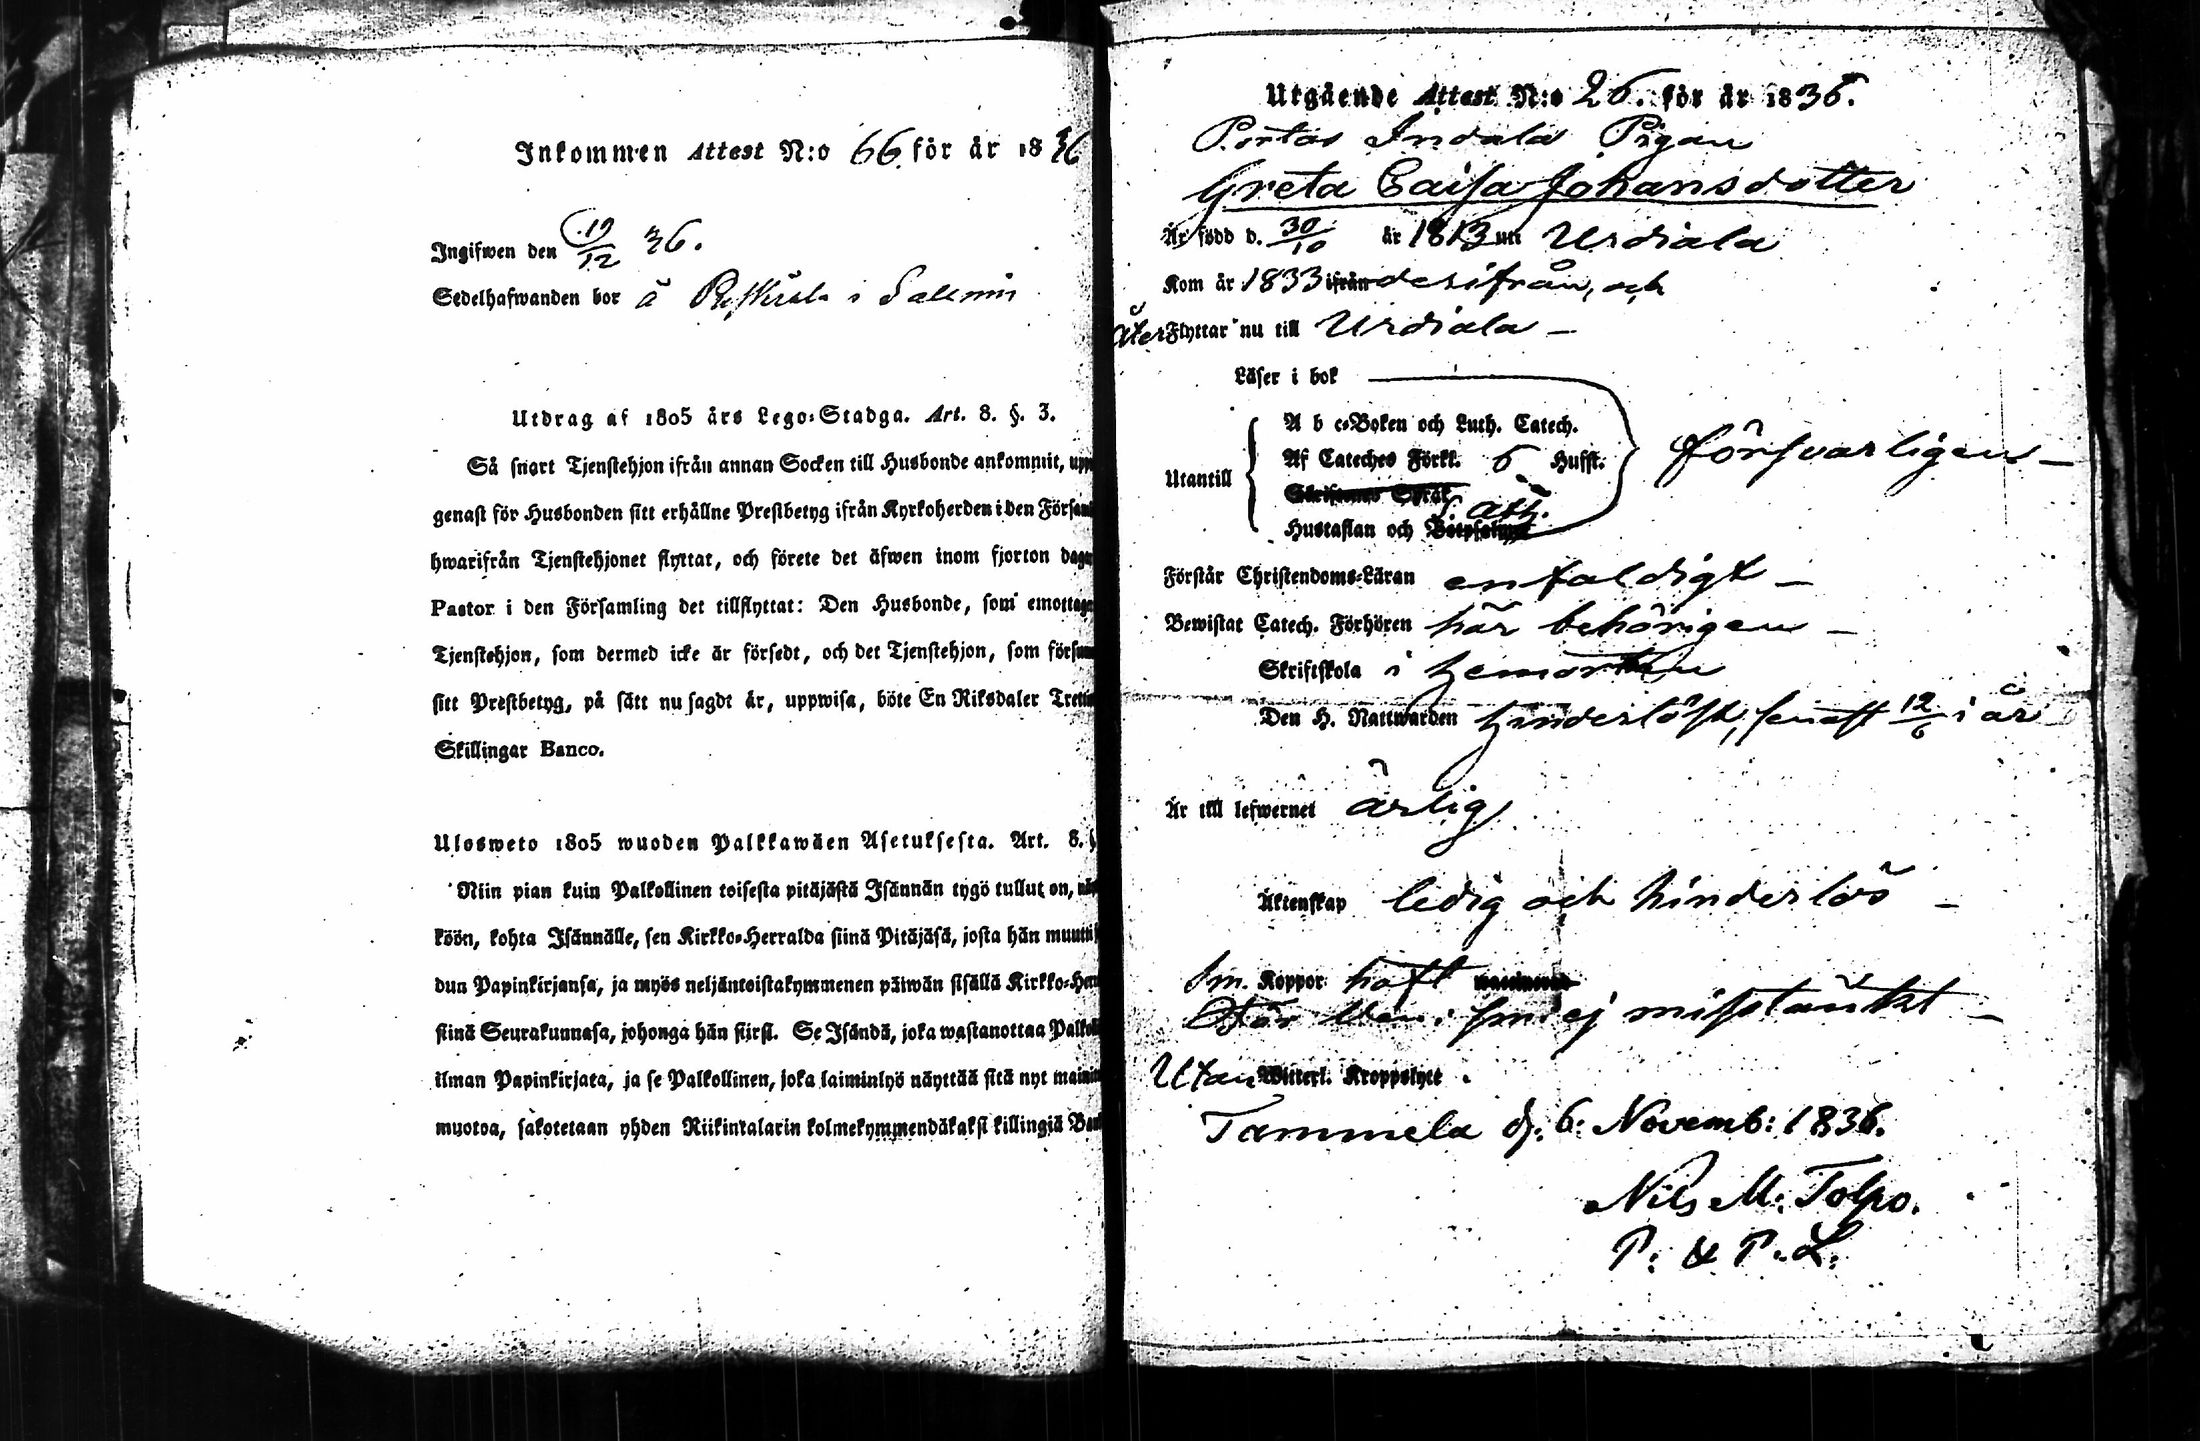 Inkommen Attest N:o 66 för år 1836
Ingifwen den 19/12 36.
Sedelhafwanden bor å i
Utdrag af 1805 års Lego-Stadga. Art. 8. §. 3.
Så snart Tjenstehjon ifrån annan Socken till Husbonde ankommit, upp
genast för Husbonden sitt erhållne Prestbetyg ifrån Kyrkoherden i den Försam
hwarifrån Tjenstehjonet flyttat, och förete det äfwen inom fjorton dagar
Pastor i den Församling det tillflyttat: Den Husbonde, som emottager
Tjenstehjon, som dermed icke är försedt, och det Tjenstehjon, som försum
sitt Prestbetyg, på sätt nu sagdt är, uppwisa, böte En Riksdaler Tretti
Skillingar Banco.
Ulosweto 1805 wuoden Palkkawäen Asetuksesta. Art. 8. §
Niin pian kuin Palkollinen toisesta pitäjästä Isännän tygö tullut on, näy
köön, kohta Isännälle, sen Kirkko-Herralda siinä Pitäjäsä, josta hän muutti
dun Papinkirjansa, ja myös neljäntoistakymmenen päiwän sisällä Kirkko-Herr
siinä Seurakunnasa, johonga hän siirsi. Se Isändä, joka wastanottaa Palkoll
ilman Papinkirjata, ja se Palkollinen, joka laiminlyö näyttää sitä nyt mainit
muotoa, sakotetaan yhden Riikintalarin kolmekymmendäkaksi killingiä Ban
Utgående Attest N:o 26. för år 1836.
Portas Indala Pigan
Greta Caisa Johansdotter
Är född d. 30/10 år 1813 uti Urdiala
Kom år 1833 ifrån derifrån, och
åter Flyttar nu till Urdiala –
Läser i bok
A b c-Boken och Luth. Catech.
Af Cateches Förkl. 6 Hufst. försvarligen –
Utantill
Skriftenes Språk
S. Ath.
Hustaflan och Botpsalmer
Förstår Christendoms-Läran enfaldigt –
Bewistat Catech. Förhören här behörigen –
Skriftskola i hemorten
Den H. Nattwarden hinderlöst, senast 12/6 i år
Är till lefwernet ärlig
Äktenskap ledig och hinderlös –
Sm. Koppor haft vaccinerad
För Ven: Smi ej misstänkt –
Utan Witterl. Kroppslyte.
Tammela d. 6: Novemb: 1836.
Nils M: Tolpo.
P: & P. L: